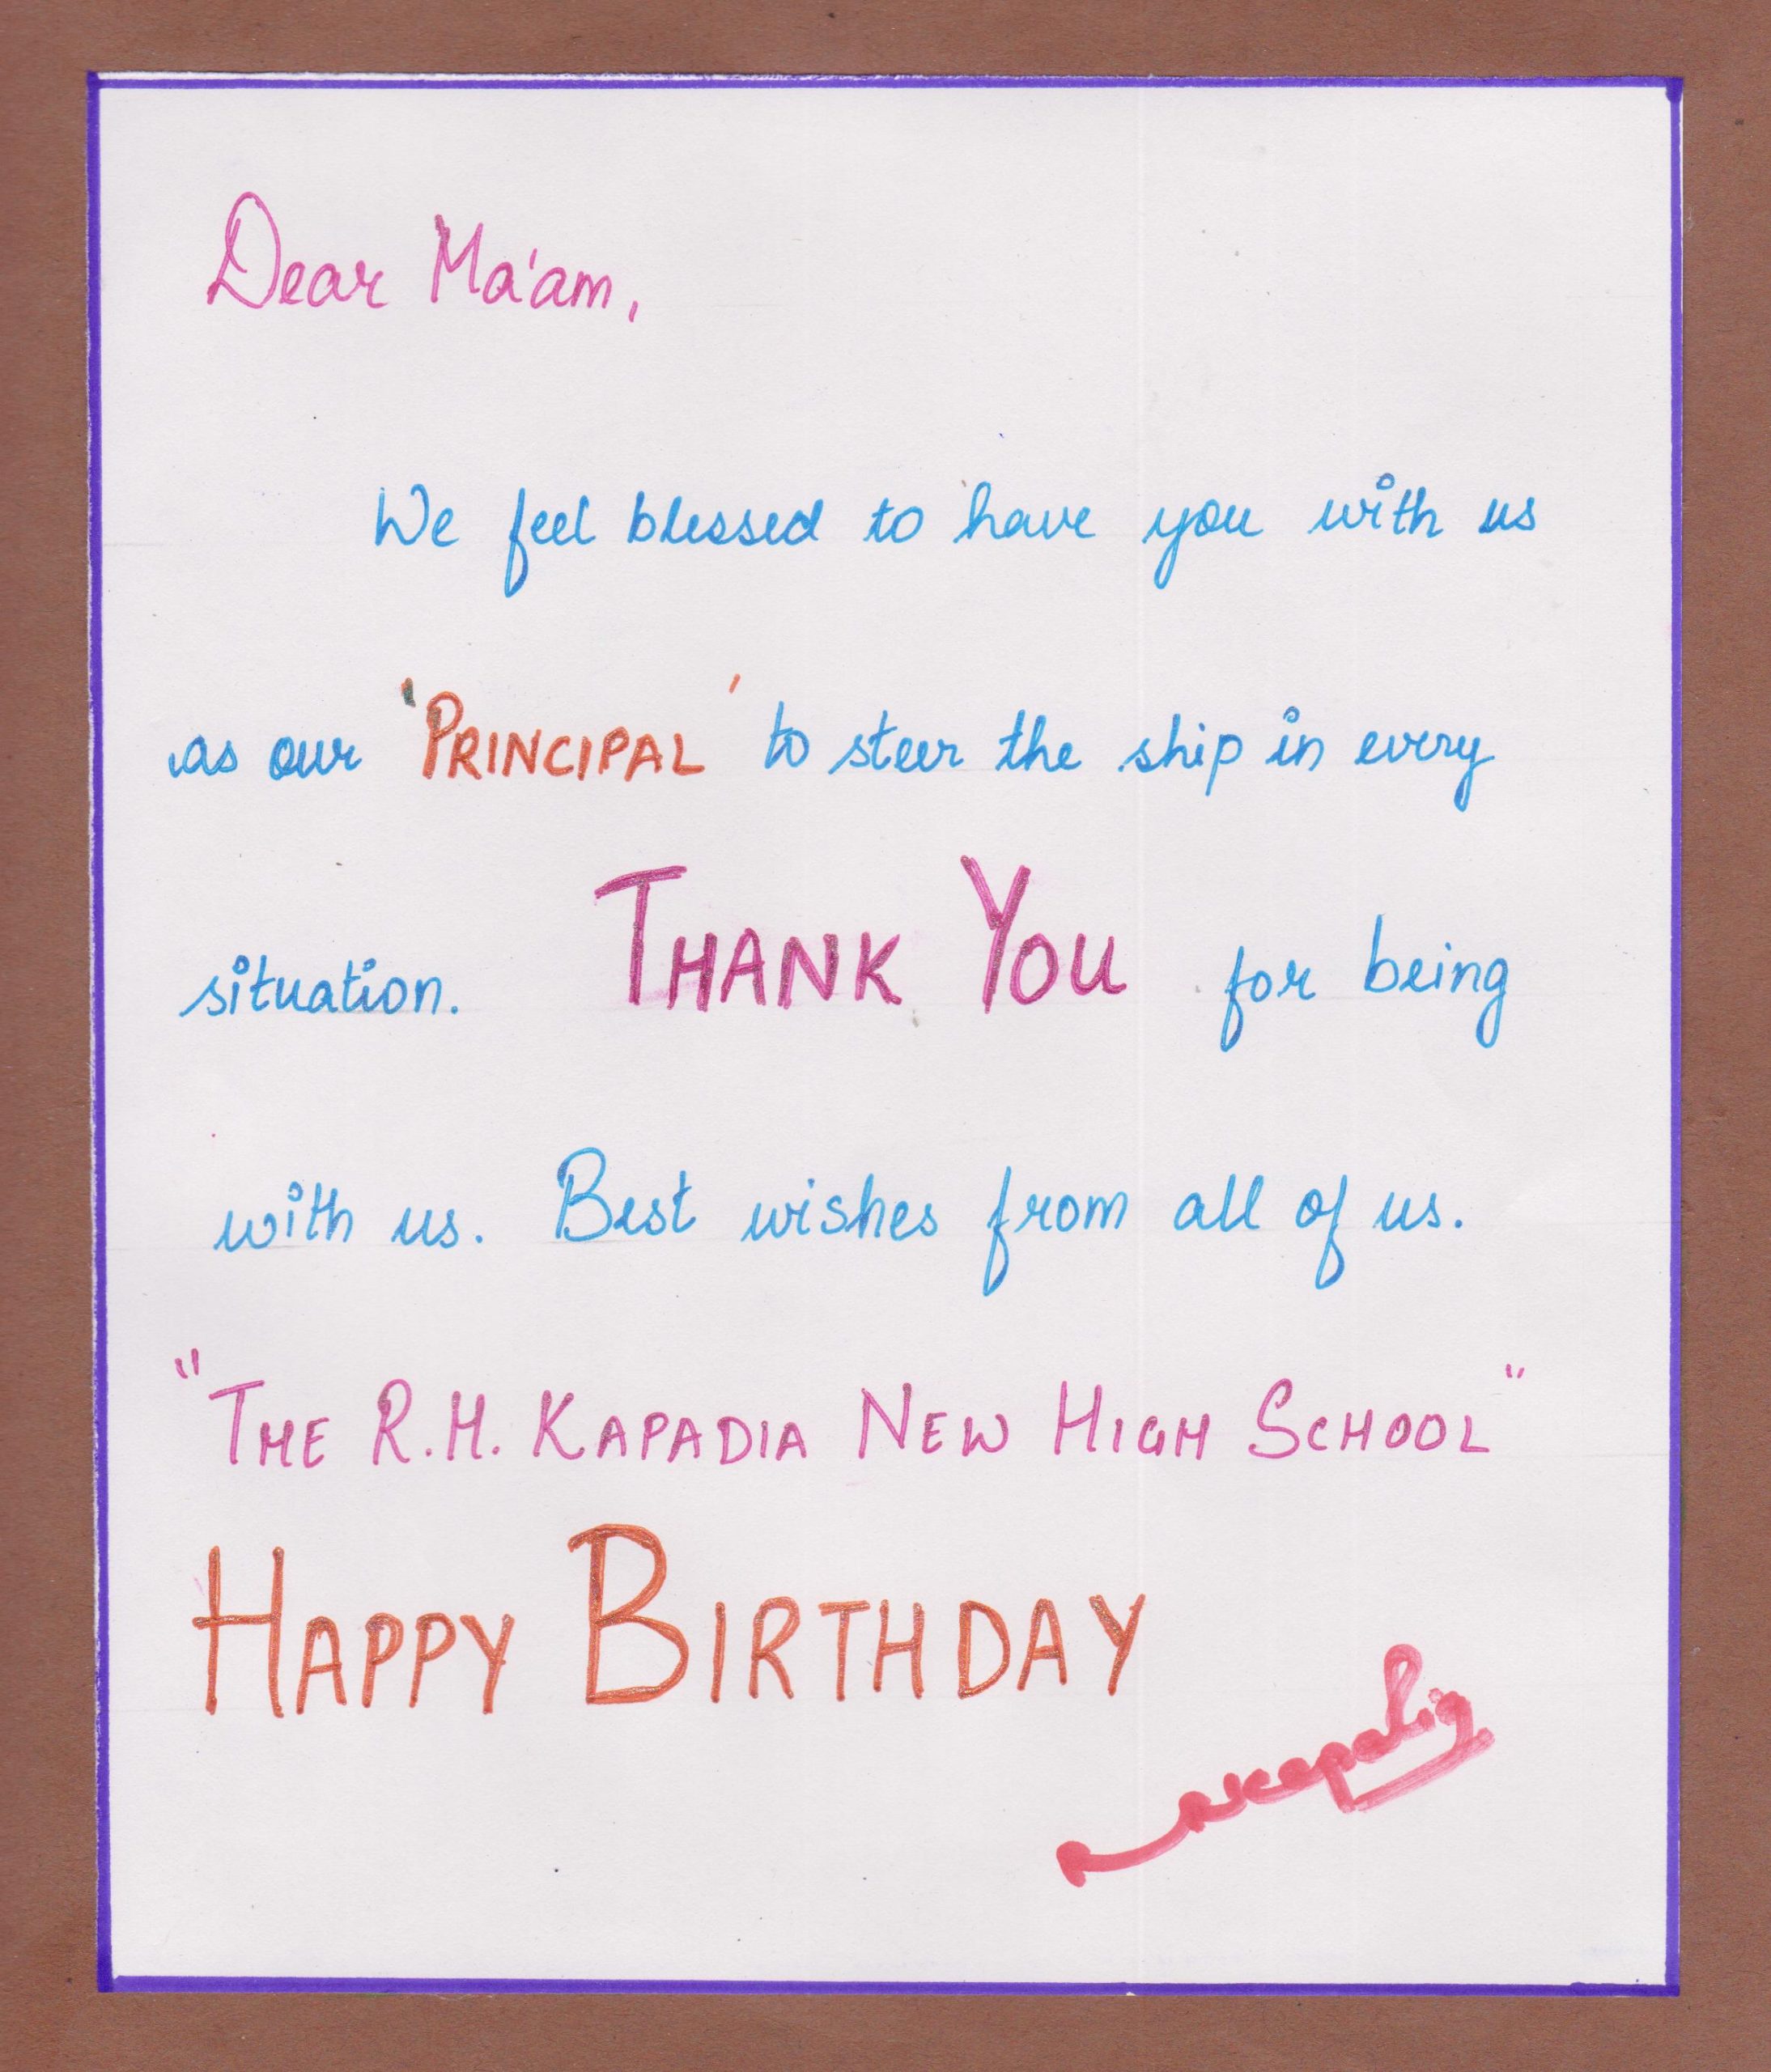 Dear Ma'am,
We feel blessed to have you with us
as our 'PRINCIPAL' to steer the ship in every
situation. THANK YOU for being
with us. Best wishes from all of us.
"THE R.H. KAPADIA NEW HIGH SCHOOL"
HAPPY BIRTHDAY